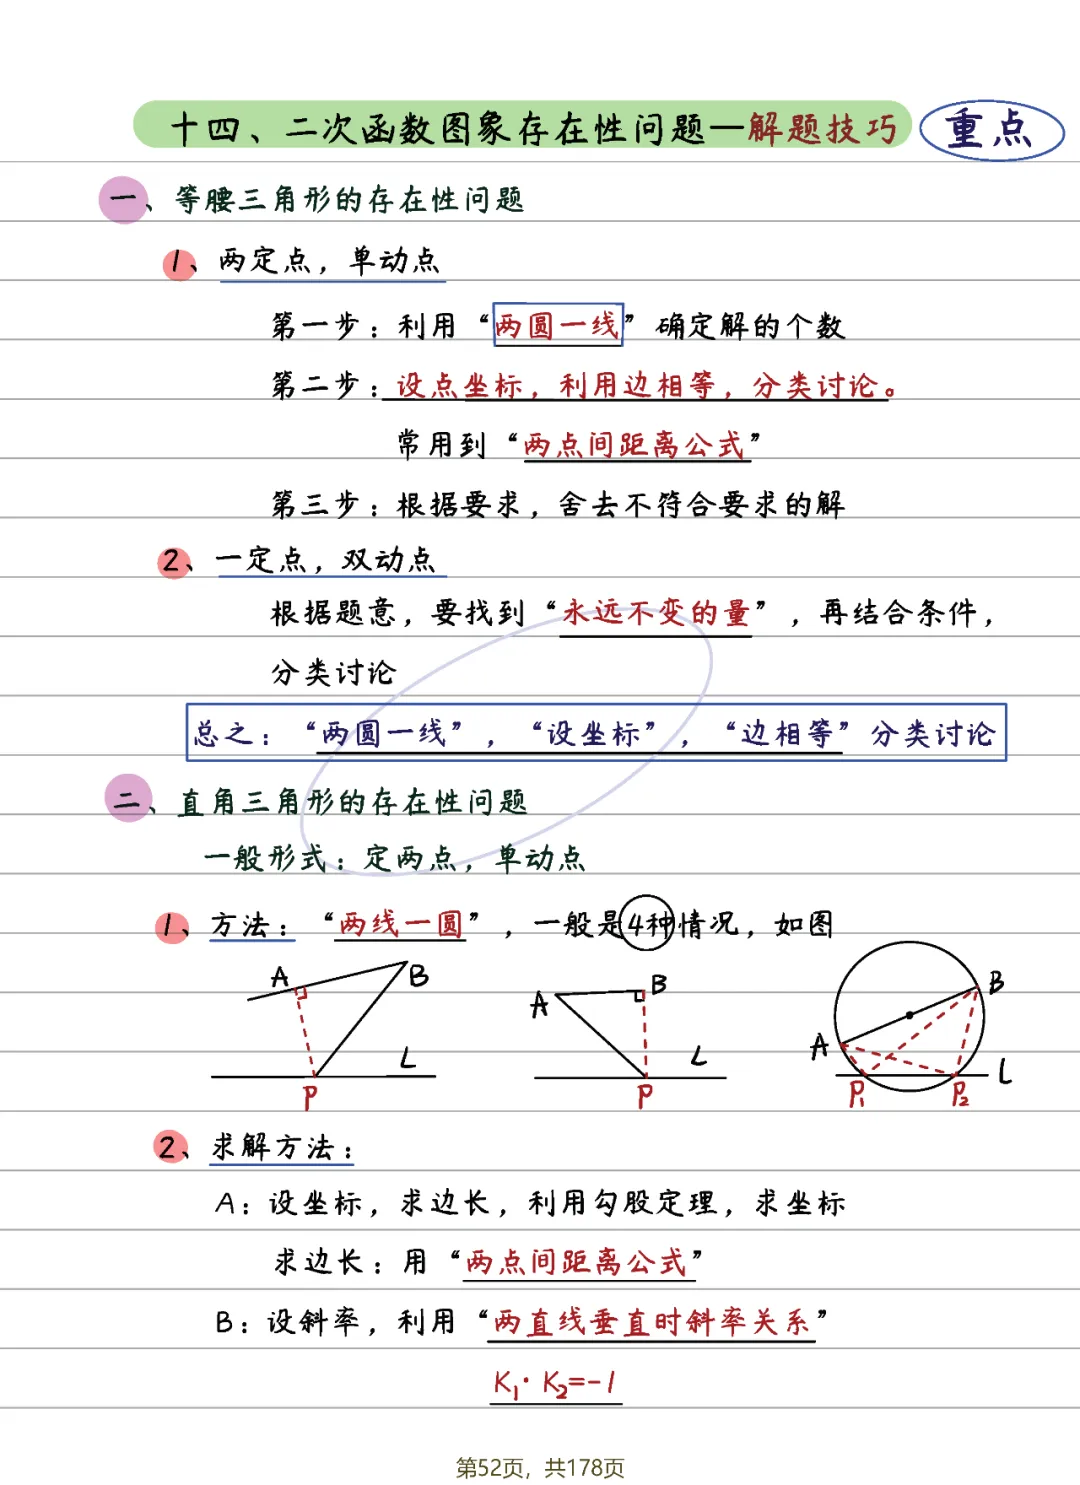 十四、二次函数图象存在性问题—解题技巧 重点
一、等腰三角形的存在性问题
1、两定点，单动点
第一步：利用“两圆一线”确定解的个数
第二步：设点坐标，利用边相等，分类讨论。
常用到“两点间距离公式”
第三步：根据要求，舍去不符合要求的解
2、一定点，双动点
根据题意，要找到“永远不变的量”，再结合条件，
分类讨论
总之：“两圆一线”，“设坐标”，“边相等”分类讨论
二、直角三角形的存在性问题
一般形式：定两点，单动点
1、方法：“两线一圆”，一般是4种情况，如图
A B L P
A B L P
A B L P₁ P₂
2、求解方法：
A：设坐标，求边长，利用勾股定理，求坐标
求边长：用“两点间距离公式”
B：设斜率，利用“两直线垂直时斜率关系”
K₁·K₂=-1
第52页，共178页